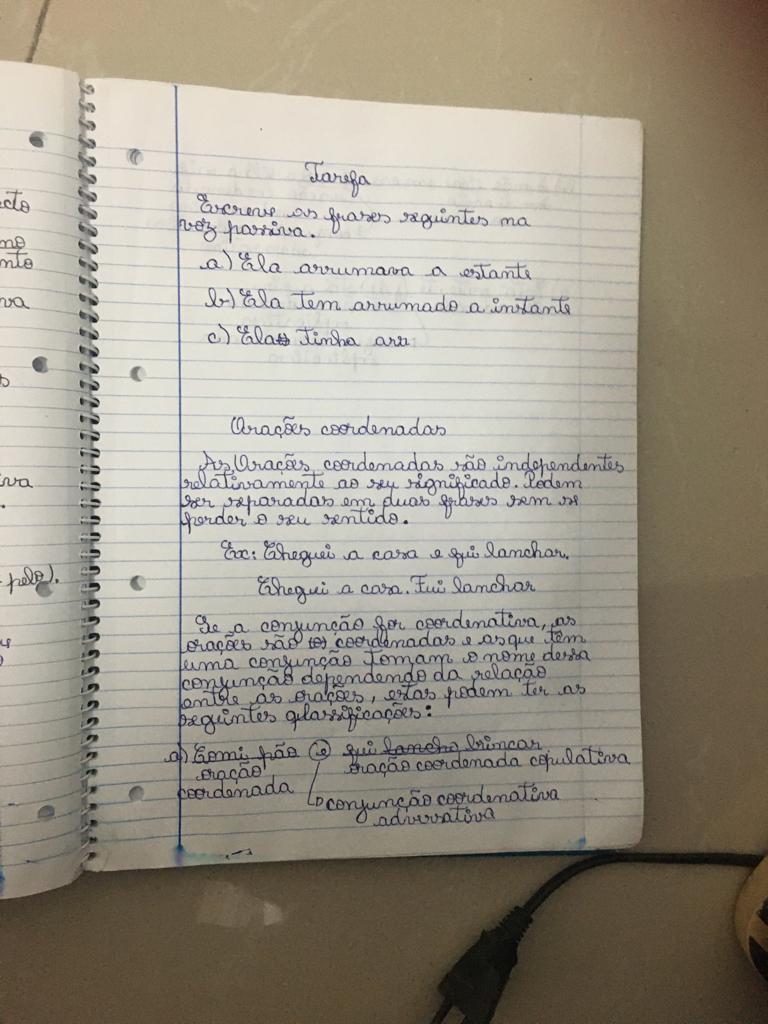 ecto
mo
nto
va
iva
pelo).
Tarefa
Escreve as frases seguintes na
voz passiva.
a) Ela arrumava a estante
b) Ela tem arrumado a instante
c) Ela tinha aru
Orações coordenadas
As Orações coordenadas são independentes
relativamente ao seu significado. Podem
ser separadas em duas frases sem se
perder o seu sentido.
Ex: Cheguei a casa e fui lanchar.
Chegui a casa. Fui lanchar
Se a conjunção for coordenativa, as
orações são coordenadas e as que têm
uma conjunção tomam o nome dessa
conjunção dependendo da relação
entre as orações, estas podem ter as
seguintes classificações:
a) Comi pão e fui lancho brincar
oração oração coordenada copulativa
coordenada
conjunção coordenativa
adversativa